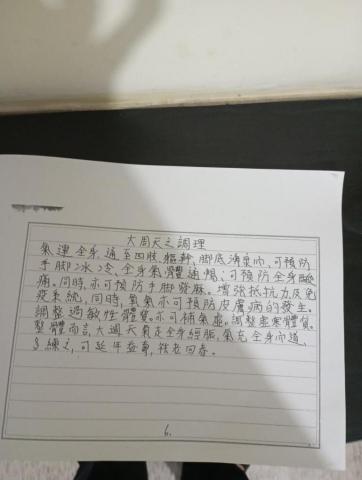 大周天之調理
氣運全身,通至四肢、軀幹、腳底湧泉內,可預防
手腳冰冷、全身氣體通暢,可預防全身酸
痛。同時,亦可預防手腳發麻。增強抵抗力及免
疫系統,同時,氧氣亦可預防皮膚病的發生。
調整過敏性體質。亦可補氣虛。調整虛寒體質。
整體而言,大週天氣走全身經脈,氣充全身而道,
多練之,可延年益壽,袪老回春。
6.